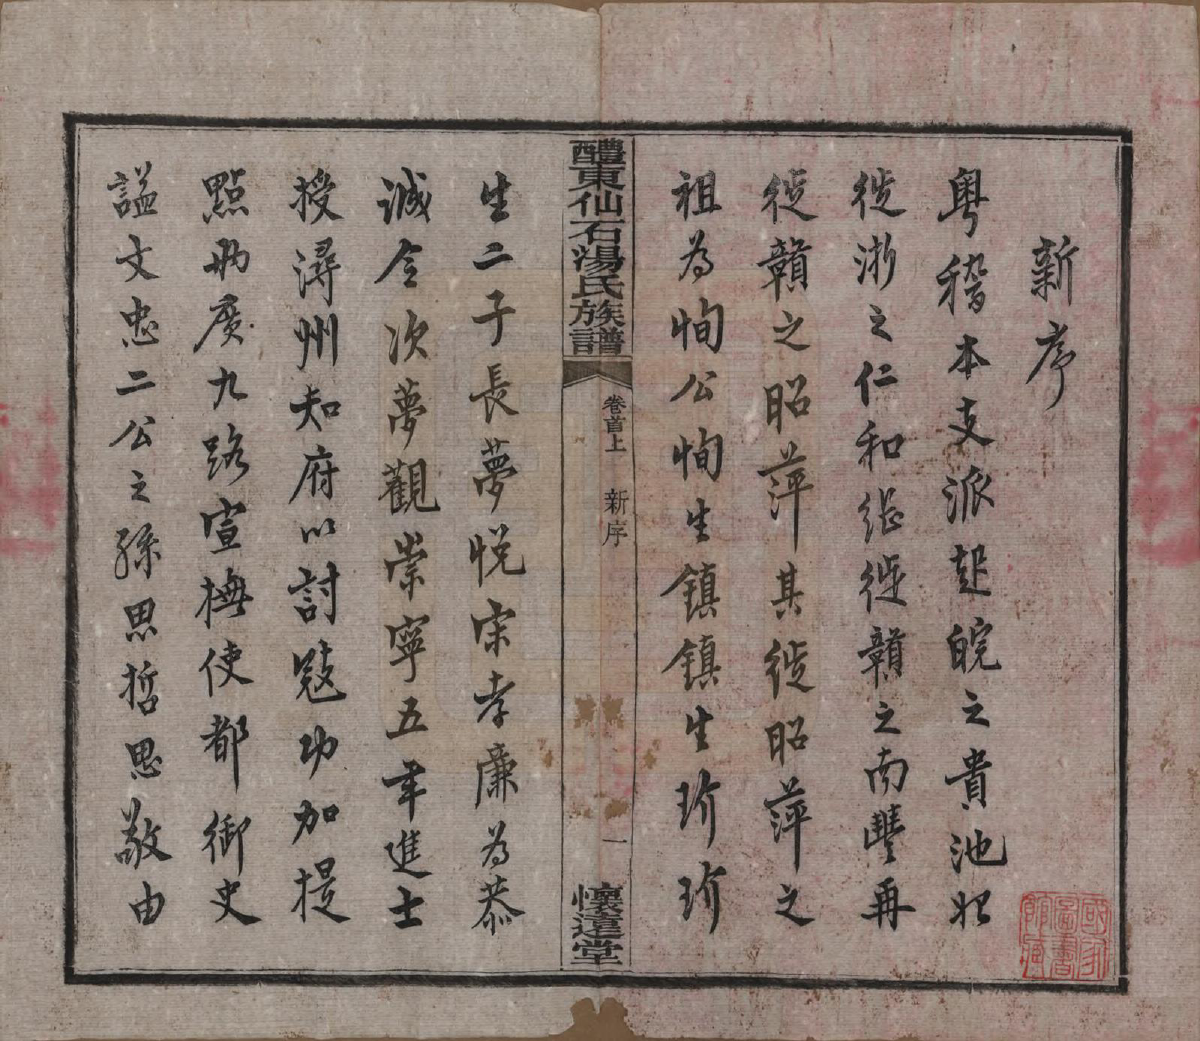 新序
粤稽本支派起皖之貴池始
徙浙之仁和繼徙贛之南豐再
徙贛之昭萍其徙昭萍之
祖為恂公恂生鎮鎮生珍珍
醴東仙石湯氏族譜
卷首上
新序
一
懷遠堂
生二子長夢悅宋孝廉為恭
誠令次夢觀崇寧五年進士
授潯州知府以討寇功加提
點兩廣九路宣撫使都御史
謚文忠二公之孫思哲思敬由
國家圖書館藏